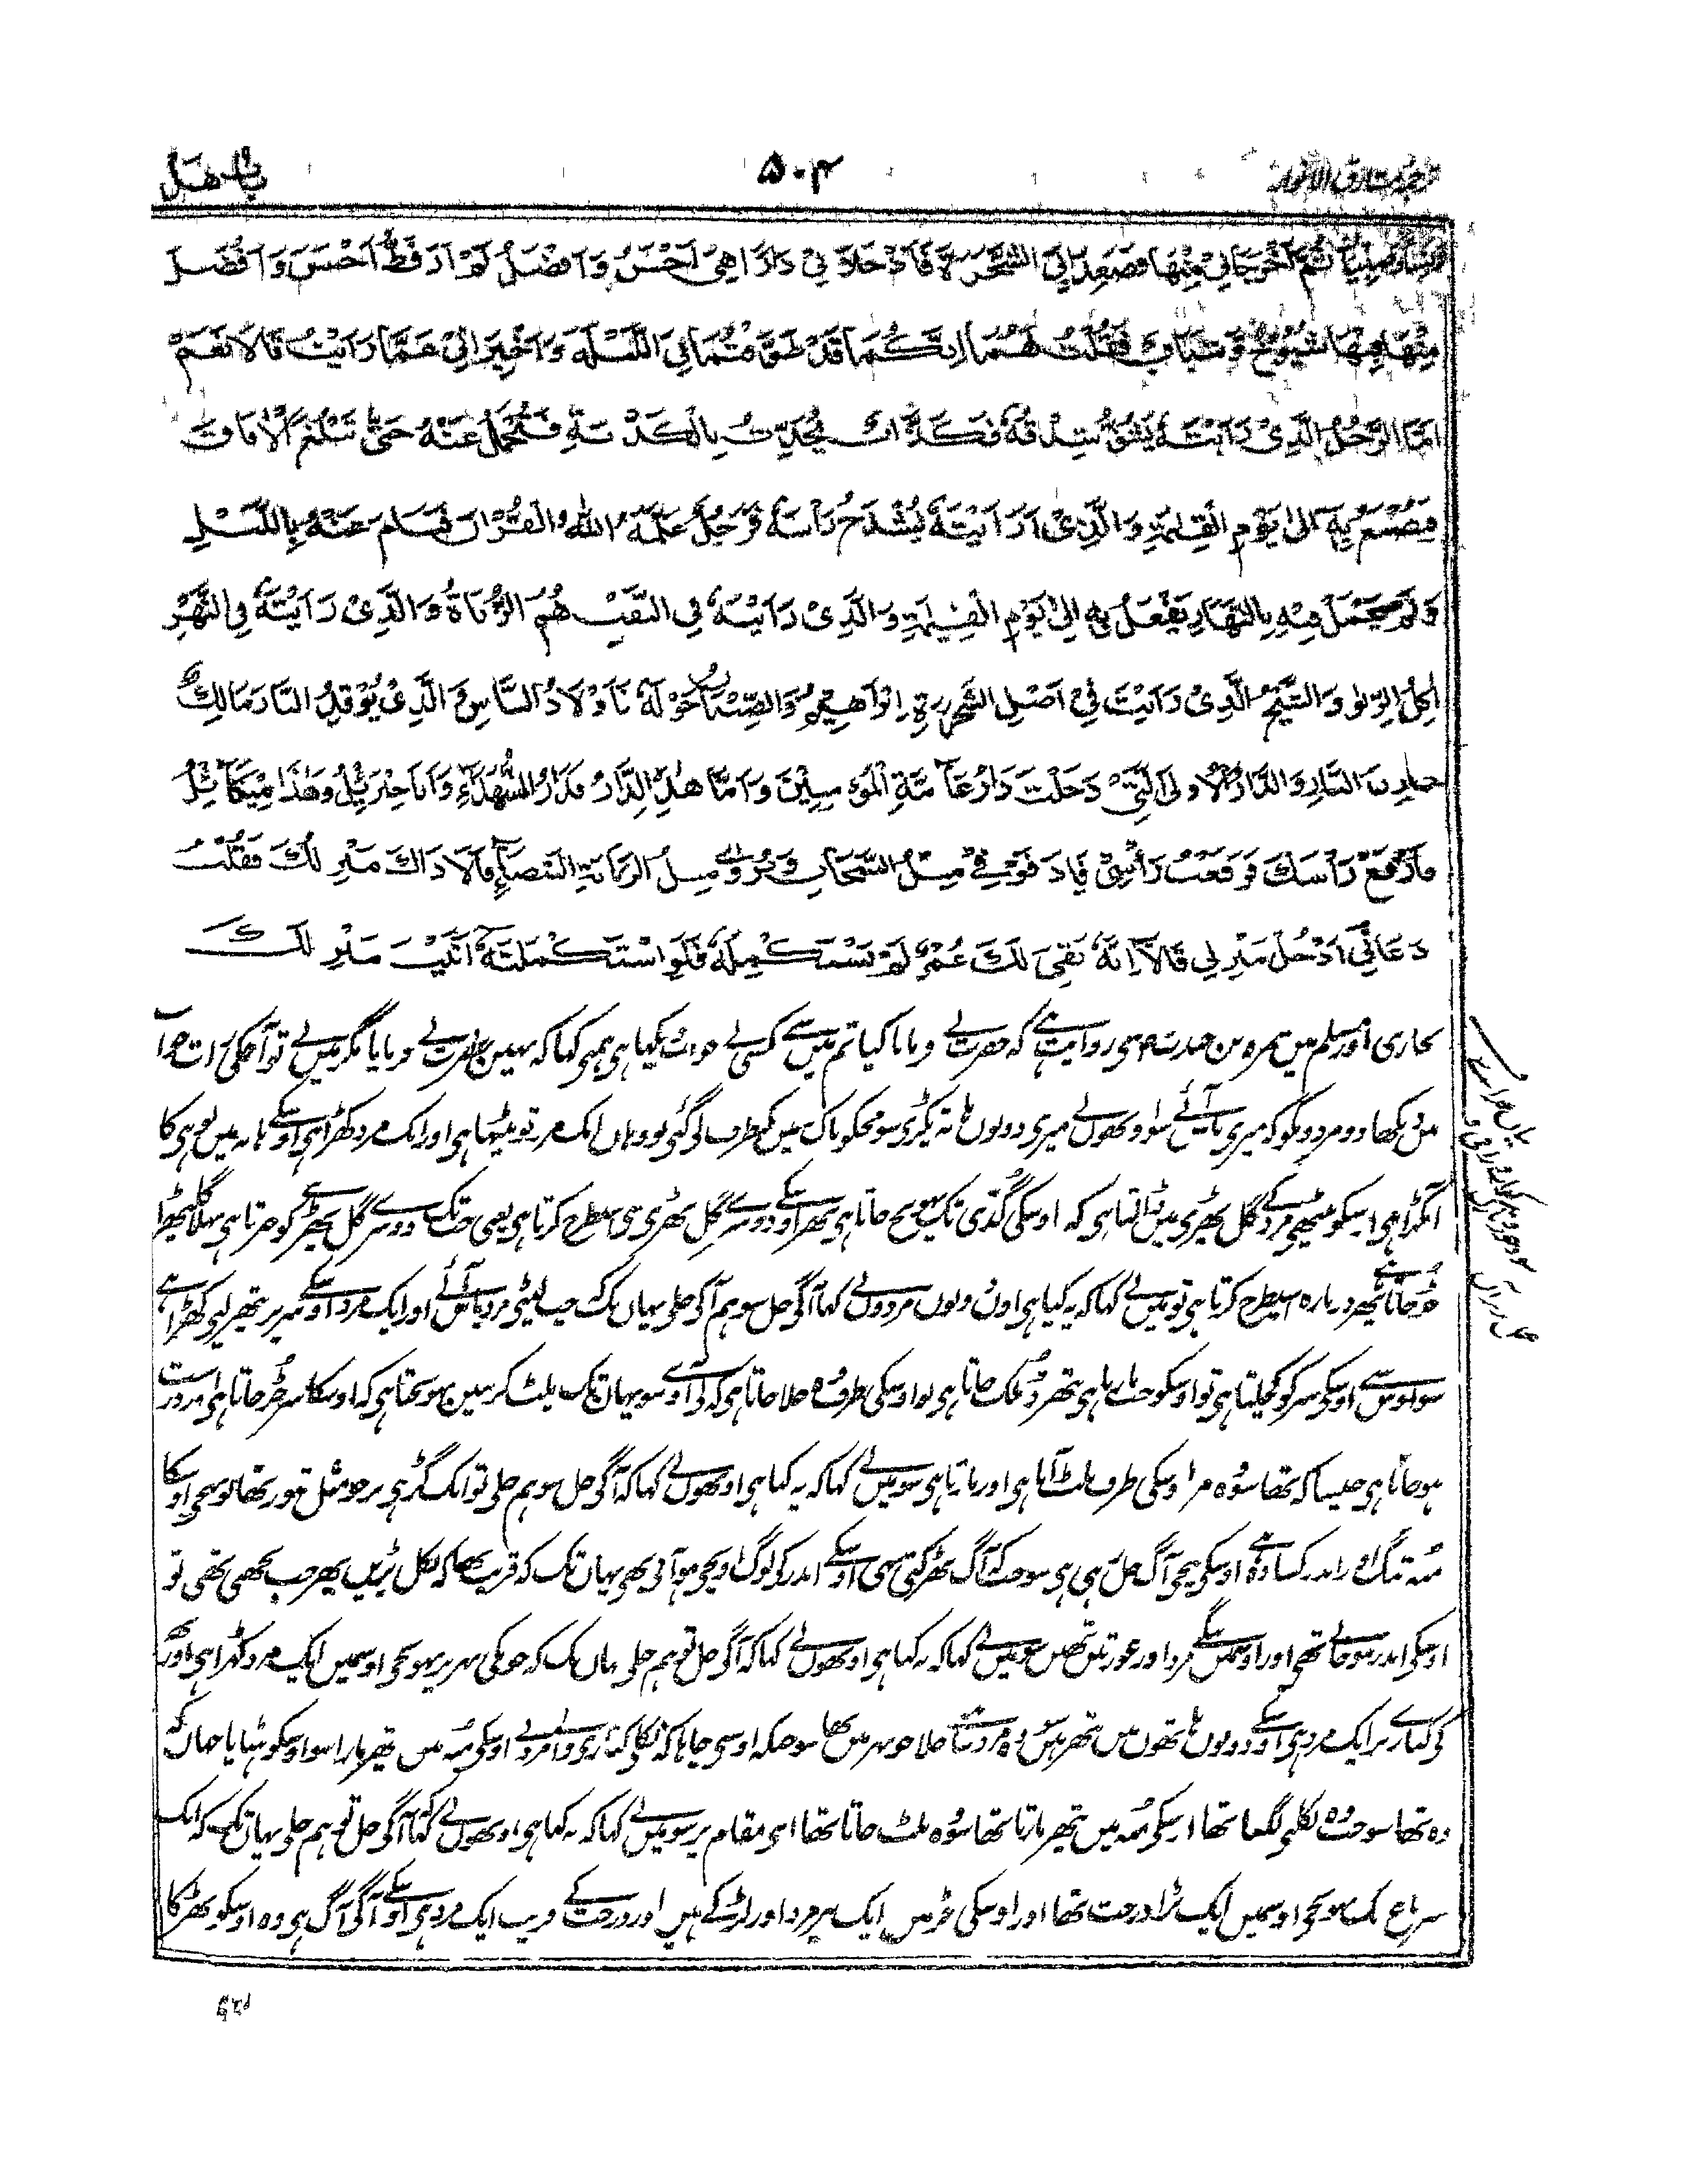 باب هل ۵۰۴ ترجمہ مشارق الانوار
ثُمَّ أَخْرَجَانِي مِنْهَا فَصَعِدَا بِيَ الشَّجَرَةَ فَأَدْخَلَانِي دَارًا هِيَ أَحْسَنُ وَأَفْضَلُ لَمْ أَرَ قَطُّ أَحْسَنَ وَأَفْضَلَ
مِنْهَا فِيْهَا شُيُوْخٌ وَشَبَابٌ فَقُلْتُ لَهُمَا إِنَّكُمَا قَدْ طَوَّفْتُمَانِي اللَّيْلَةَ وَأَخْبِرَانِيْ عَمَّا رَأَيْتُ قَالَا نَعَمْ
أَمَّا الرَّجُلُ الَّذِيْ رَأَيْتَهُ يُشَقُّ شِدْقُهُ فَكَذَّابٌ يُحَدِّثُ بِالْكَذْبَةِ فَتُحْمَلُ عَنْهُ حَتَّى تَبْلُغَ الْآفَاقَ
فَيُصْنَعُ بِهٖ إِلَى يَوْمِ الْقِيٰمَةِ وَالَّذِيْ رَأَيْتَهُ يُشْدَخُ رَأْسُهُ فَرَجُلٌ عَلَّمَهُ اللّٰهُ الْقُرْآنَ فَنَامَ عَنْهُ بِاللَّيْلِ
وَلَمْ يَعْمَلْ فِيْهِ بِالنَّهَارِ يُفْعَلُ بِهٖ إِلَى يَوْمِ الْقِيٰمَةِ وَالَّذِيْ رَأَيْتَهُ فِي النَّقْبِ هُمُ الزُّنَاةُ وَالَّذِيْ رَأَيْتَهُ فِي النَّهْرِ
آكِلُ الرِّبٰوا وَالشَّيْخُ الَّذِيْ رَأَيْتَ فِيْ أَصْلِ الشَّجَرَةِ إِبْرَاهِيْمُ وَالصِّبْيَانُ حَوْلَهُ فَأَوْلَادُ النَّاسِ وَالَّذِيْ يُوْقِدُ النَّارَ مَالِكٌ
خَازِنُ النَّارِ وَالدَّارُ الْأُوْلَى الَّتِيْ دَخَلْتَ دَارُ عَامَّةِ الْمُؤْمِنِيْنَ وَأَمَّا هٰذِهِ الدَّارُ فَدَارُ الشُّهَدَاءِ وَأَنَا جِبْرَئِيْلُ وَهٰذَا مِيْكَائِيْلُ
فَارْفَعْ رَأْسَكَ فَرَفَعْتُ رَأْسِيْ فَإِذَا فَوْقِيْ مِثْلُ السَّحَابِ وَيُرْوٰى مِثْلُ الرَّبَابَةِ الْبَيْضَاءِ قَالَا ذَاكَ مَنْزِلُكَ فَقُلْتُ
دَعَانِيْ أَدْخُلْ مَنْزِلِي قَالَا إِنَّهُ بَقِيَ لَكَ عُمُرٌ لَمْ تَسْتَكْمِلْهُ فَلَوِ اسْتَكْمَلْتَهُ أَتَيْتَ مَنْزِلَكَ
بخاری اور مسلم میں سمرہ بن جندب سی روایت ہے کہ حضرت نے فرمایا کیا تم میں سے کسی نے خواب دیکھا ہی ہمنی کہا کہ نہیں حضرت نے فرمایا مگر میں نے تو آج کی رات خواب
میں دیکھا دو مردونکو کہ میری پاس آئے سو اونھوں نے میری دونوں ہاتھ پکڑی سو مجکو پاک زمین کیطرف لی گئی تو وہاں ایک مرد تو بیٹھا ہی اور ایک مرد کھڑا ہی اوسکے ہاتھ میں لوہی کا
آنکڑا ہی اوسکو بیٹھی مرد کے گل پھڑی میں ڈالتا ہی کہ اوسکی گُدّی تک پہنچ جاتا ہی پھر اوسکے دوسرے گل پھڑی سی اسیطرح کرتا ہی یعنی جب تک دوسرے گل پھڑے کو چیرتا ہی پہلا گلپھڑا
جُڑ جاتا ہے پھر دوبارہ اسیطرح کرتا ہی تو میں نے کہا کہ یہ کیا ہی اون دونوں مردوں نے کہا آگی چل سو ہم آگی چلی یہاں تک کہ چت لیٹی مرد پاس آئے اور ایک مرد اوسکے سر پر پتھر لیی کھڑا ہے
سو اوس سے اوسکی سر کو کچلتا ہی تو اوسکو جب مارتا ہی پتھر ڈھلک جاتا ہی تو اوسکی طرف وہ چلا جاتا ہی کہ لے آوے سو یہاں تک پلٹ کر نہیں پہونچتا ہی کہ اوسکا سر جُڑ جاتا ہی اور درست
ہو جاتا ہی جیسا کہ تھا سو وہ مرد اوسکی طرف پلٹ آتا ہی اور مارتا ہی سو میں نے کہا کہ یہ کیا ہی اونھوں نے کہا کہ آگی چل سو ہم چلی تو ایک گڑہی پر جو مثل تنور تھا پہونچی اوسکا
مُنہ تنگ اور اندر کشادہ اوسکی نیچی آگ جل رہی ہی سو جب آگ بھڑکتی تھی اوسکے اندر کی لوگ اونچی ہو آتی تھی یہاں تک کہ قریب تھا کہ نکل پڑیں پھر جب بجھتی تھی تو
اوسکی اندر ہو جاتے تھی اور اوسمیں ننگے مرد اور عورتیں تھیں سو میں نے کہا کہ یہ کیا ہی اونھوں نے کہا کہ آگی چل تو ہم چلی یہاں تک کہ خون کی نہر پر پہونچی اوسمیں ایک مرد کھڑا ہی اور نہر
کی کنارے پر ایک مرد ہی اوسکے دونوں ہاتھوں میں پتھر ہیں سو وہ مرد سامنے چلا جو نہر میں تھا سو جبکہ اوسنی چاہا کہ نکلی کناری والے مرد نے اوسکی مُنہ میں پتھر مارا سو اوسکو ہٹایا جہاں کہ
وہ تھا سو جب وہ نکلنی لگتا تھا اوسکی مُنہ میں پتھر مارتا تھا سو وہ پلٹ جاتا تھا اسی مقام پر سو میں نے کہا کہ یہ کیا ہی اونھوں نے کہا آگی چل تو ہم چلی یہاں تک کہ ایک
سبز باغ تک پہونچی اوسمیں ایک بڑا درخت تھا اور اوسکی جڑ میں ایک پیر مرد اور لڑکے ہیں اور درخت کے قریب ایک مرد ہی اوسکے آگی آگ ہی وہ اوسکو بھڑکا